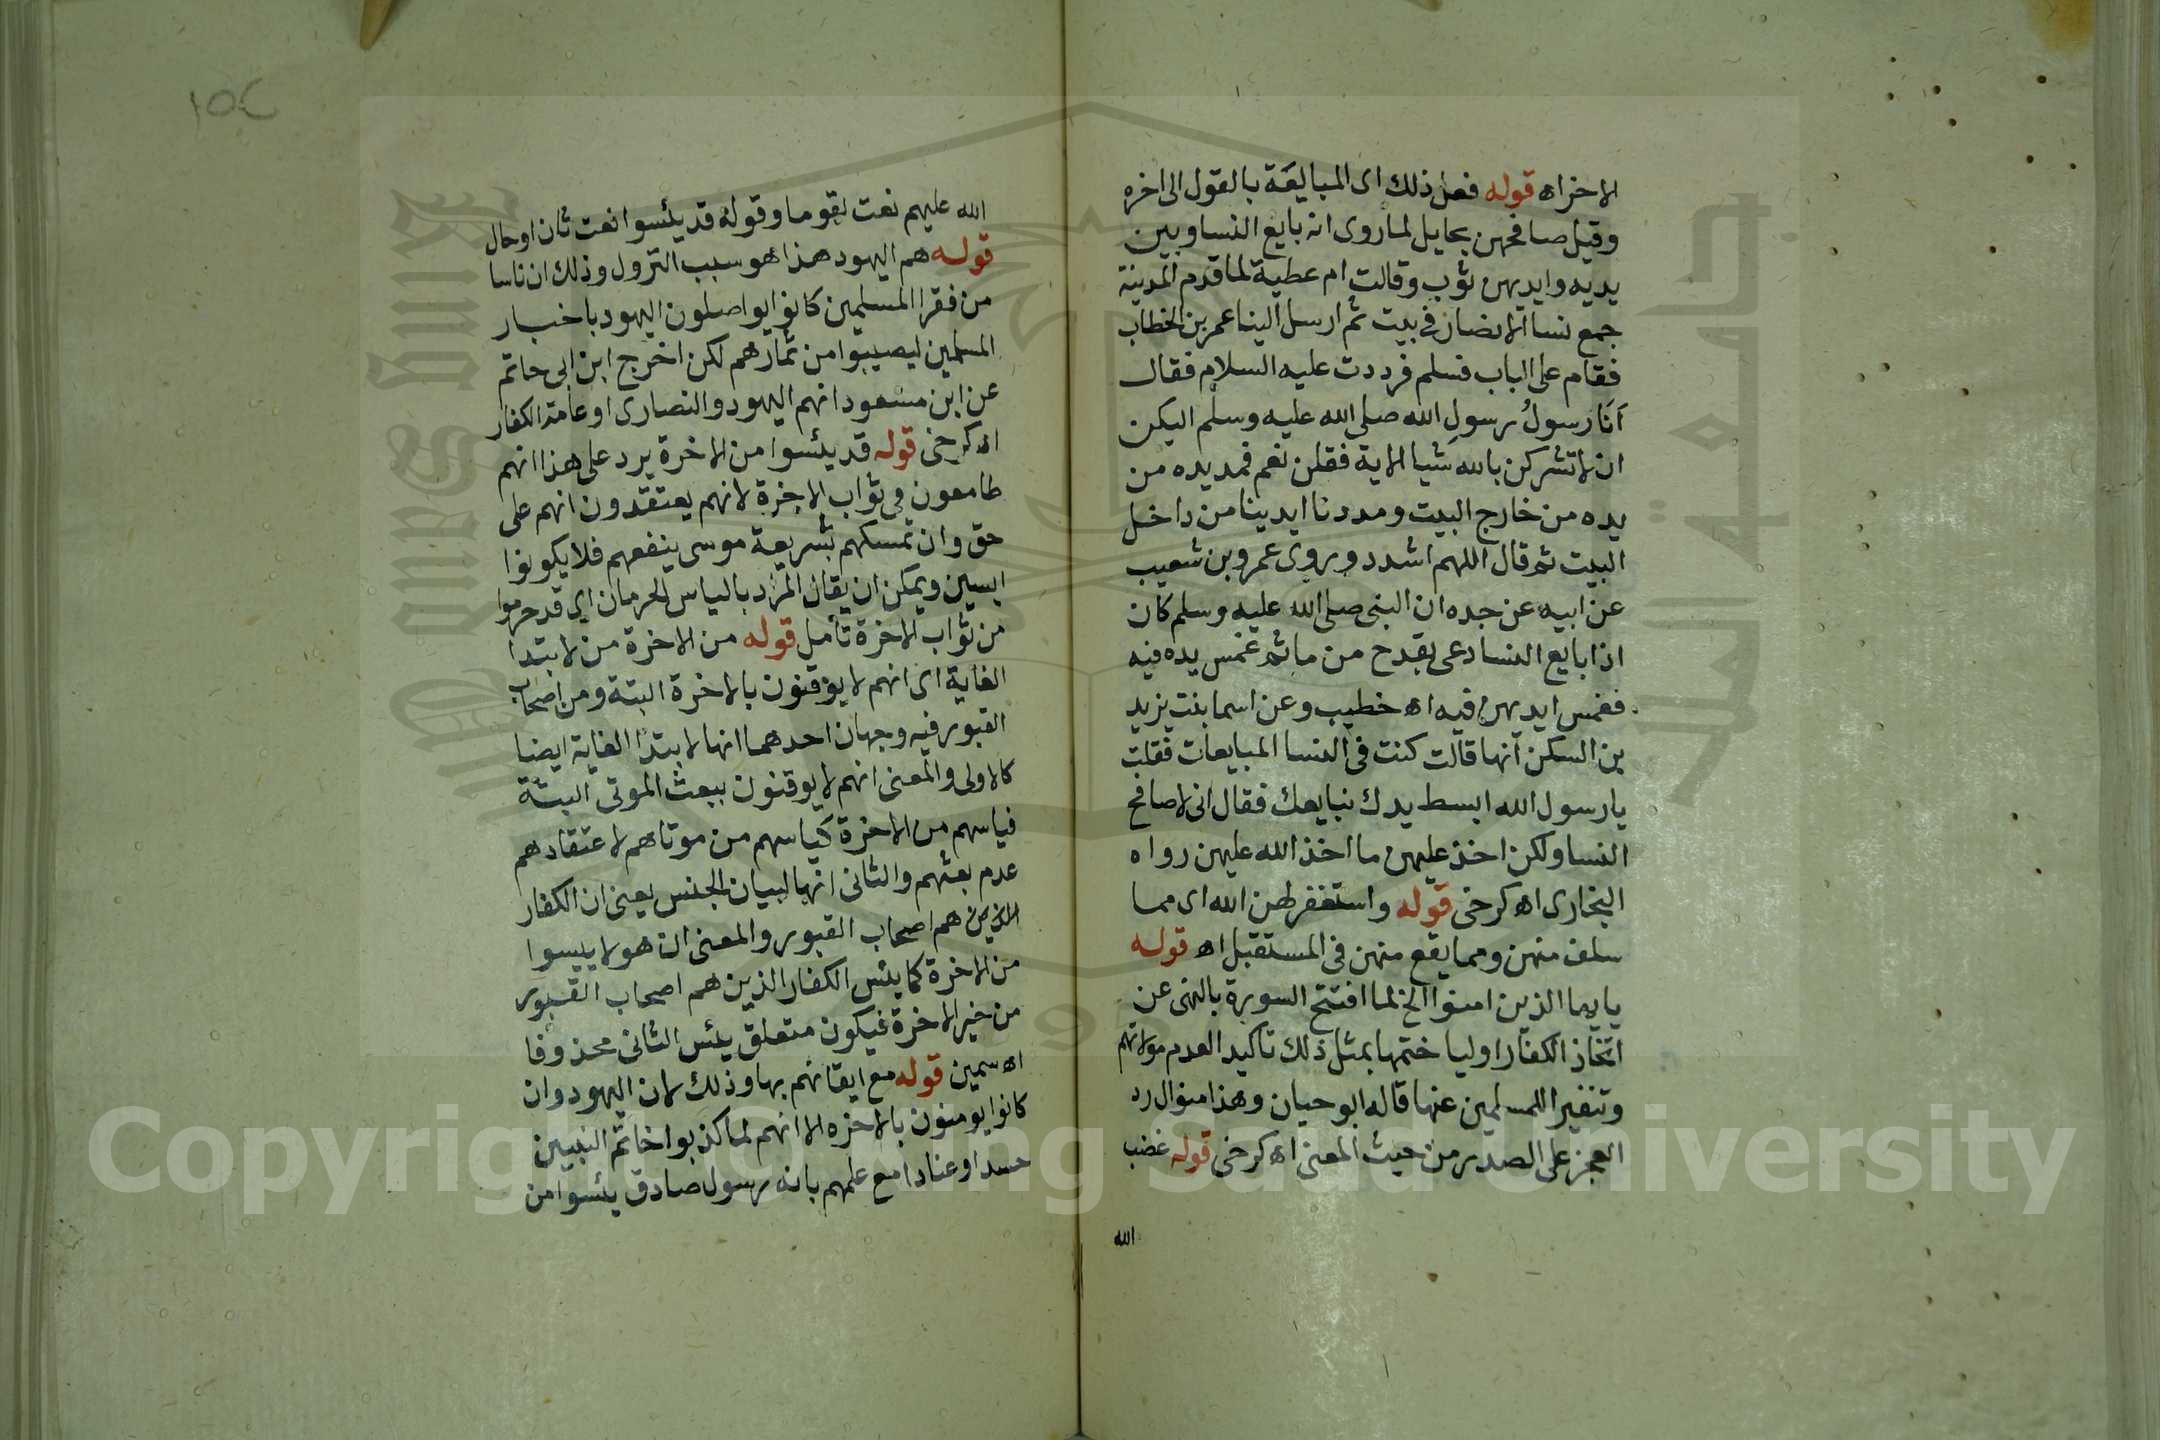 الاخراه قوله فعل ذلك اى المبايعة بالقول الى اخره
وقيل صافحهن بحايل لما روى انه بايع النسا وبين
يديه وايديهن ثوب وقالت ام عطية لما قدم المدينة
جمع نسا الانصار فى بيت ثم ارسل الينا عمر بن الخطاب
فقام على الباب فسلم فرددت عليه السلام فقال
اَنَا رسولُ رسولِ الله صلى الله عليه وسلم اليكن
ان لا تشركن بالله شيا الاية فقلن نعم فمد يده من
يده من خارج البيت ومددنا ايدينا من داخل
البيت ثم قال اللهم اشدد وروى عمرو بن شعيب
عن ابيه عن جده ان النبى صلى الله عليه وسلم كان
اذا بايع النسا دعى بقدح من ما ثم غمس يده فيه
فغمس ايديهن فيه اه خطيب وعن اسما بنت يزيد
بن السكن انها قالت كنت فى النسا المبايعات فقلت
يا رسول الله ابسط يدك نبايعك فقال انى لا صافح
النسا ولكن اخذ عليهن ما اخذ الله عليهن رواه
البخارى اه كرخى قوله واستغفر لهن الله اى مما
سلف منهن ومما يقع منهن فى المستقبل اه قوله
يا يها الذين امنوا الخ لما افتتح السورة بالنهى عن
اتخاذ الكفار اوليا ختمها بمثل ذلك تاكيد العدم موالاتهم
وتنفيرا للمسلمين عنها قاله ابو حيان وهذا منوال رد
العجز على الصدر من حيث المعنى اه كرخى قوله غضب
الله
١٥٤
الله عليهم نعت لقوما وقوله قد يئسوا نعت ثان اوحال
قوله هم اليهود هذا هو سبب النزول وذلك ان ناسا
من فقرا المسلمين كانوا يواصلون اليهود باخبار
المسلمين ليصيبوا من ثمارهم لكن اخرج ابن ابى حاتم
عن ابن مسعود انهم اليهود والنصارى او عامة الكفار
اه كرخى قوله قد يئسوا من الاخرة يرد على هذا انهم
طامعون فى ثواب الاخرة لانهم يعتقدون انهم على
حق وان تمسكهم بشريعة موسى ينفعهم فلا يكونوا
ايسين ويمكن ان يقال المراد بالياس الحرمان اى قد حرموا
من ثواب الاخرة تأمل قوله من الاخرة من لابتدا
الغاية اى انهم لا يوقنون بالاخرة البتة ومن اصحاب
القبور فيه وجهان احدهما انها لابتدا الغاية ايضا
كالاولى والمعنى انهم لا يوقنون ببعث الموتى البتة
فياسهم من الاخرة كياسهم من موتاهم لاعتقادهم
عدم بعثهم والثانى انها لبيان الجنس يعنى ان الكفار
الذين هم اصحاب القبور والمعنى ان هولا ييسوا
من الاخرة كما يئس الكفار الذين هم اصحاب القبور
من خير الاخرة فيكون متعلق يئس الثانى محذوفا
اه سمين قوله مع ايقانهم بها وذلك لان اليهود وان
كانوا يومنون بالاخره الا انهم لما كذبوا خاتم النبيين
حسدا وعنادا مع علمهم بانه رسول صادق يئسوا من
Copyright © King Saud University
جامعة الملك سعود
King Saud University